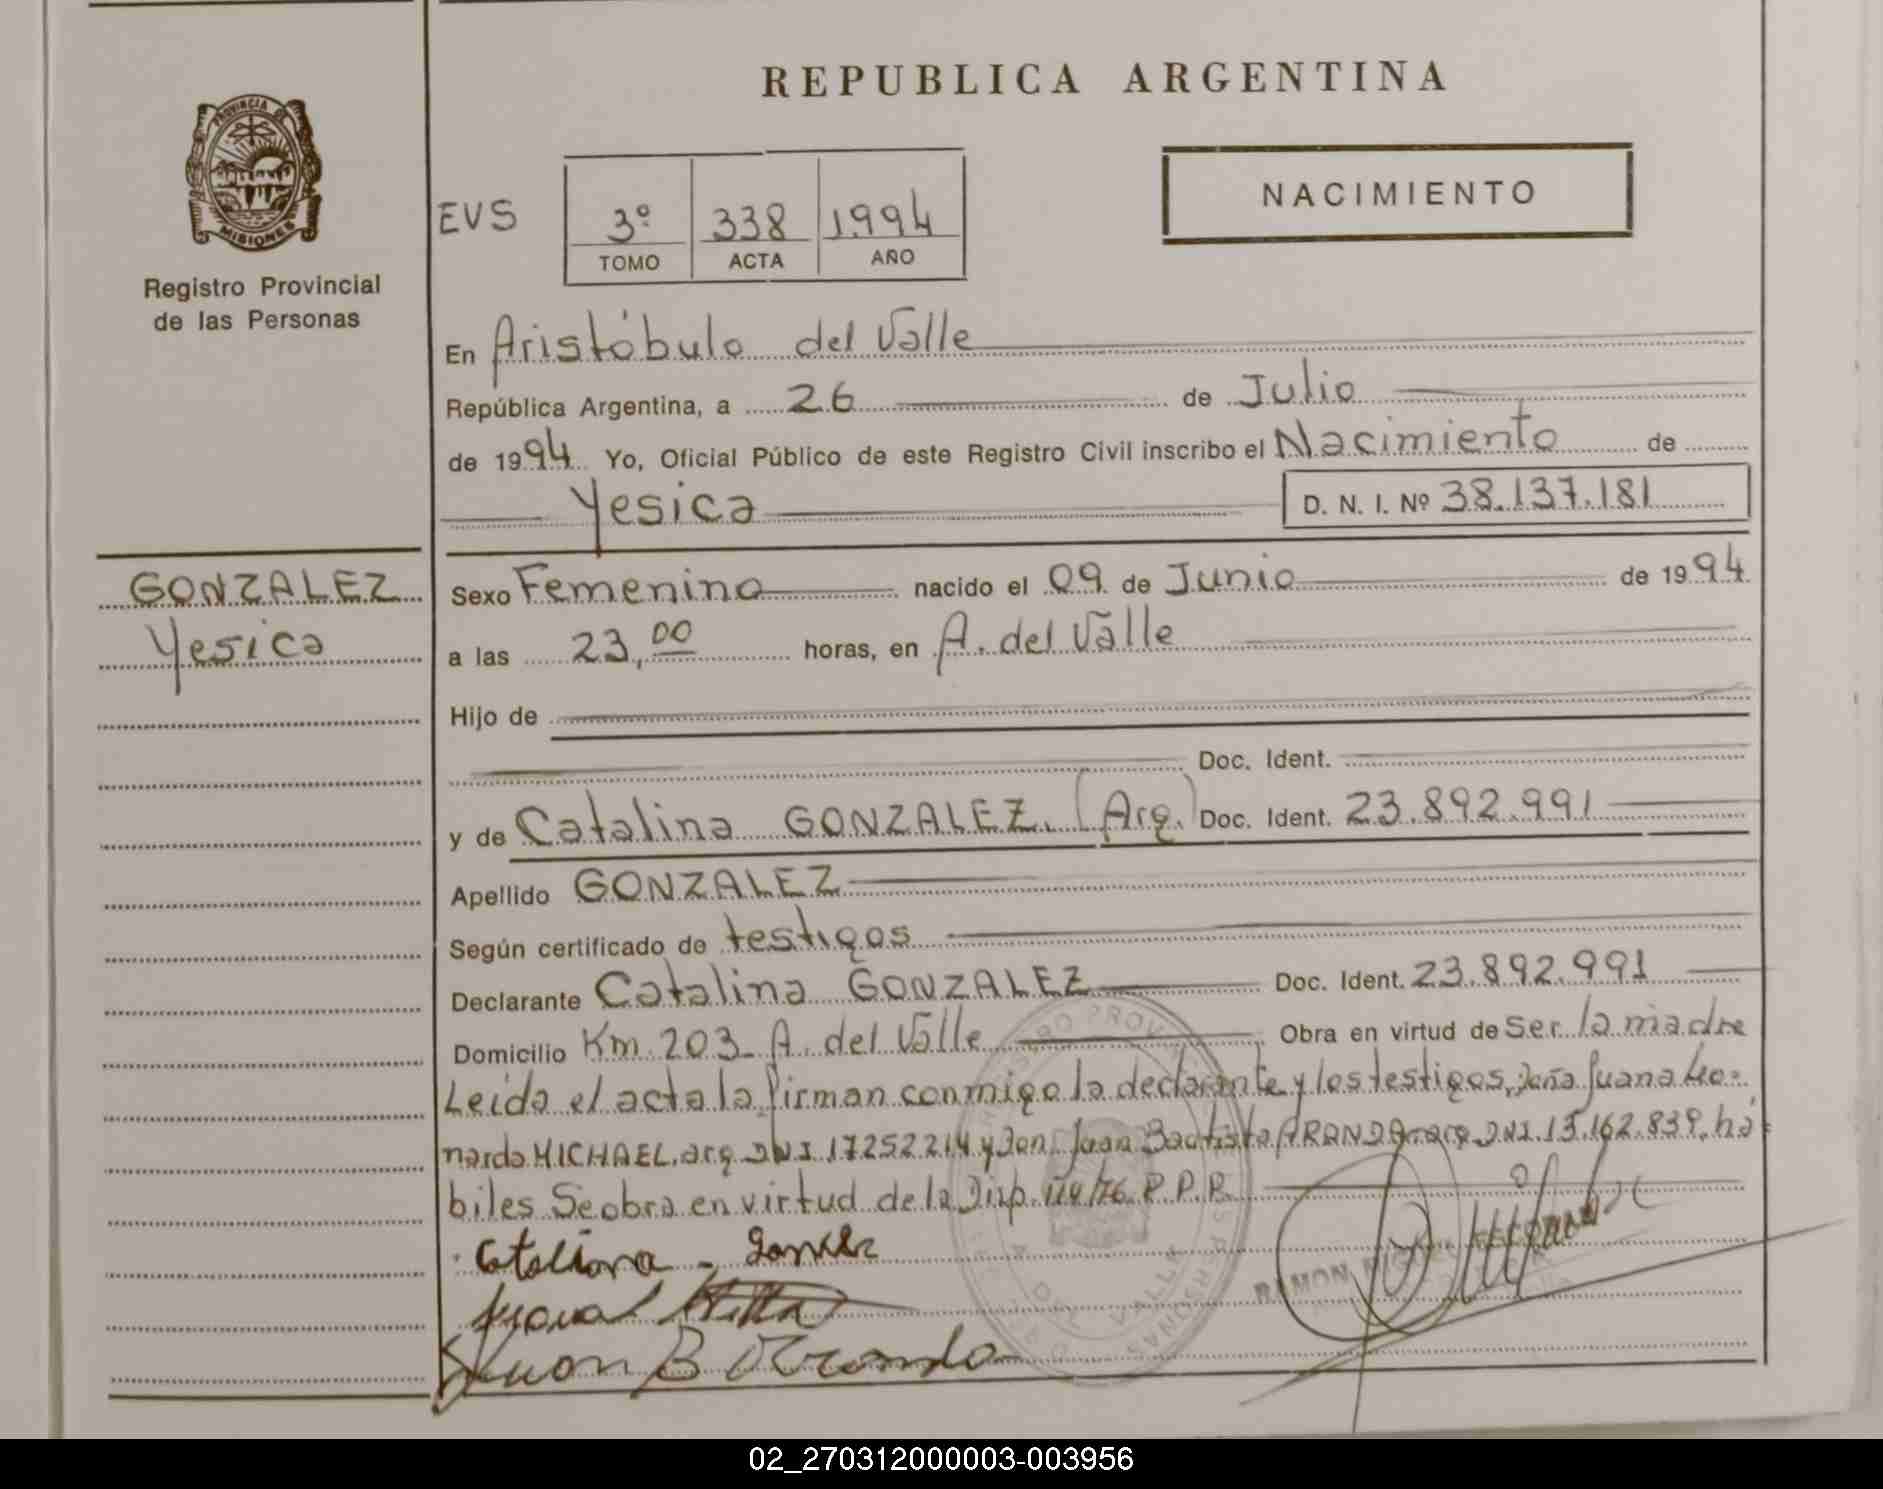 REPUBLICA ARGENTINA
PROVINCIA DE
MISIONES
Registro Provincial
de las Personas
EVS
3º 338 1994
TOMO ACTA AÑO
NACIMIENTO
En Aristóbulo del Valle
República Argentina, a 26 de Julio
de 1994 Yo, Oficial Público de este Registro Civil inscribo el Nacimiento de
Yesica D. N. I. Nº 38.137.181
GONZALEZ
Yesica
Sexo Femenino nacido el 09 de Junio de 1994
a las 23,00 horas, en A. del Valle
Hijo de
Doc. Ident.
y de Catalina GONZALEZ. (Arg.) Doc. Ident. 23.892.991
Apellido GONZALEZ
Según certificado de testigos
Declarante Catalina GONZALEZ Doc. Ident. 23.892.991
Domicilio Km. 203 A. del Valle Obra en virtud de ser la madre
Leida el acta la firman conmigo la declarante y los testigos, doña Juana Leo-
narda MICHAEL, arg. DNI 17252214 y Don Juan Bautista ARANDA arg. DNI. 13.162.839, há
biles Se obra en virtud de la Disp. 114/76 R.P.P.
Catalina
Juan B Aranda
RAMON
02_270312000003-003956